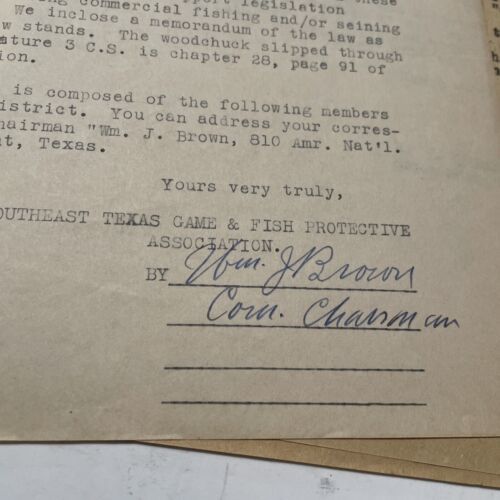 port legislation these
ing commercial fishing and/or seining
We inclose a memorandum of the law as
w stands. The woodchuck slipped through
ature 3 C.S. is chapter 28, page 91 of
ion.
is composed of the following members
istrict. You can address your corres-
hairman "Wm. J. Brown, 810 Amr. Nat'l.
nt, Texas.
Yours very truly,
OUTHEAST TEXAS GAME & FISH PROTECTIVE
ASSOCIATION.
BY Wm. J Brown
Com. Chairman